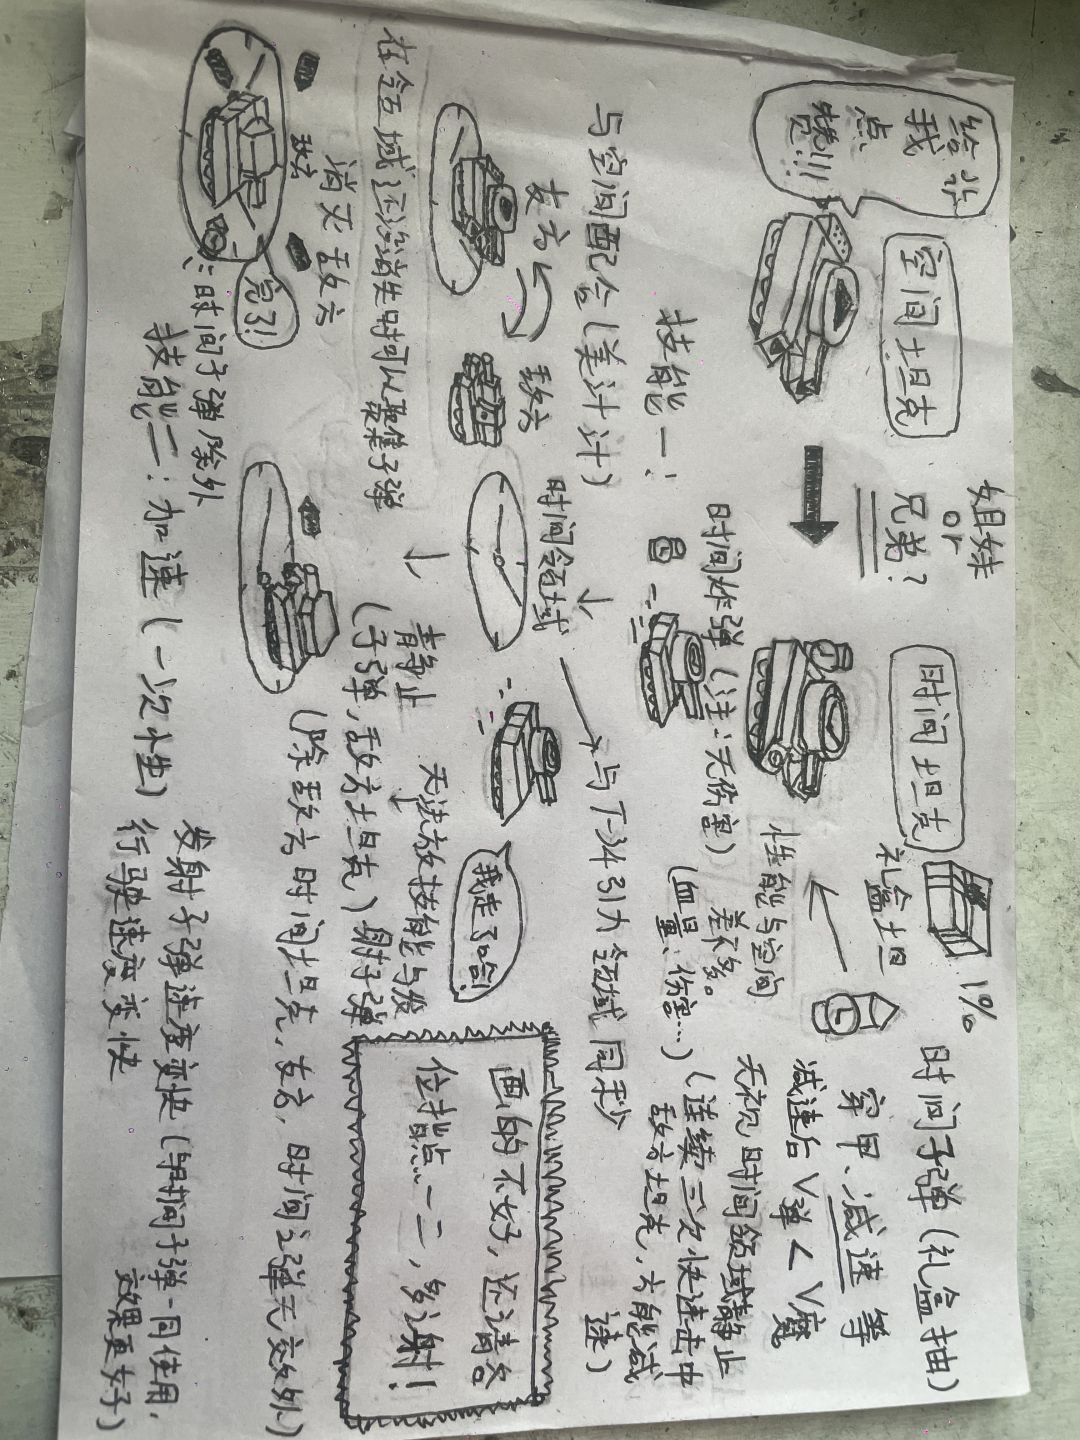 给我
点
空间坦克
姐妹
or
兄弟?
时间坦克
礼盒坦
1%
时间子弹(礼盒抽)
穿甲、减速等
减速后V弹<V魔
无视时间领域静止
(连续三次快速击中
敌方坦克,方能减
速)
性能与空间
差不多。
(血量、伤害…)
技能一:
时间炸弹(注:无伤害)
与空间配合(美计计)
时间领域
与T-34引力领域同秒
友方
敌方
静止
(子弹,敌方坦克)
无法放技能与发
射子弹
我走了哈!
在领域还没消失时可以聚集子弹
消灭敌方
敌方
完了!
:时间子弹除外
(除敌方时间坦克,友方,时间之弹无效外)
画的不好,还请各
位指点一二,多谢!
技能二:加速(一次十生)
发射子弹速度变快(与时间子弹一同使用,
效果更好)
行驶速度变快